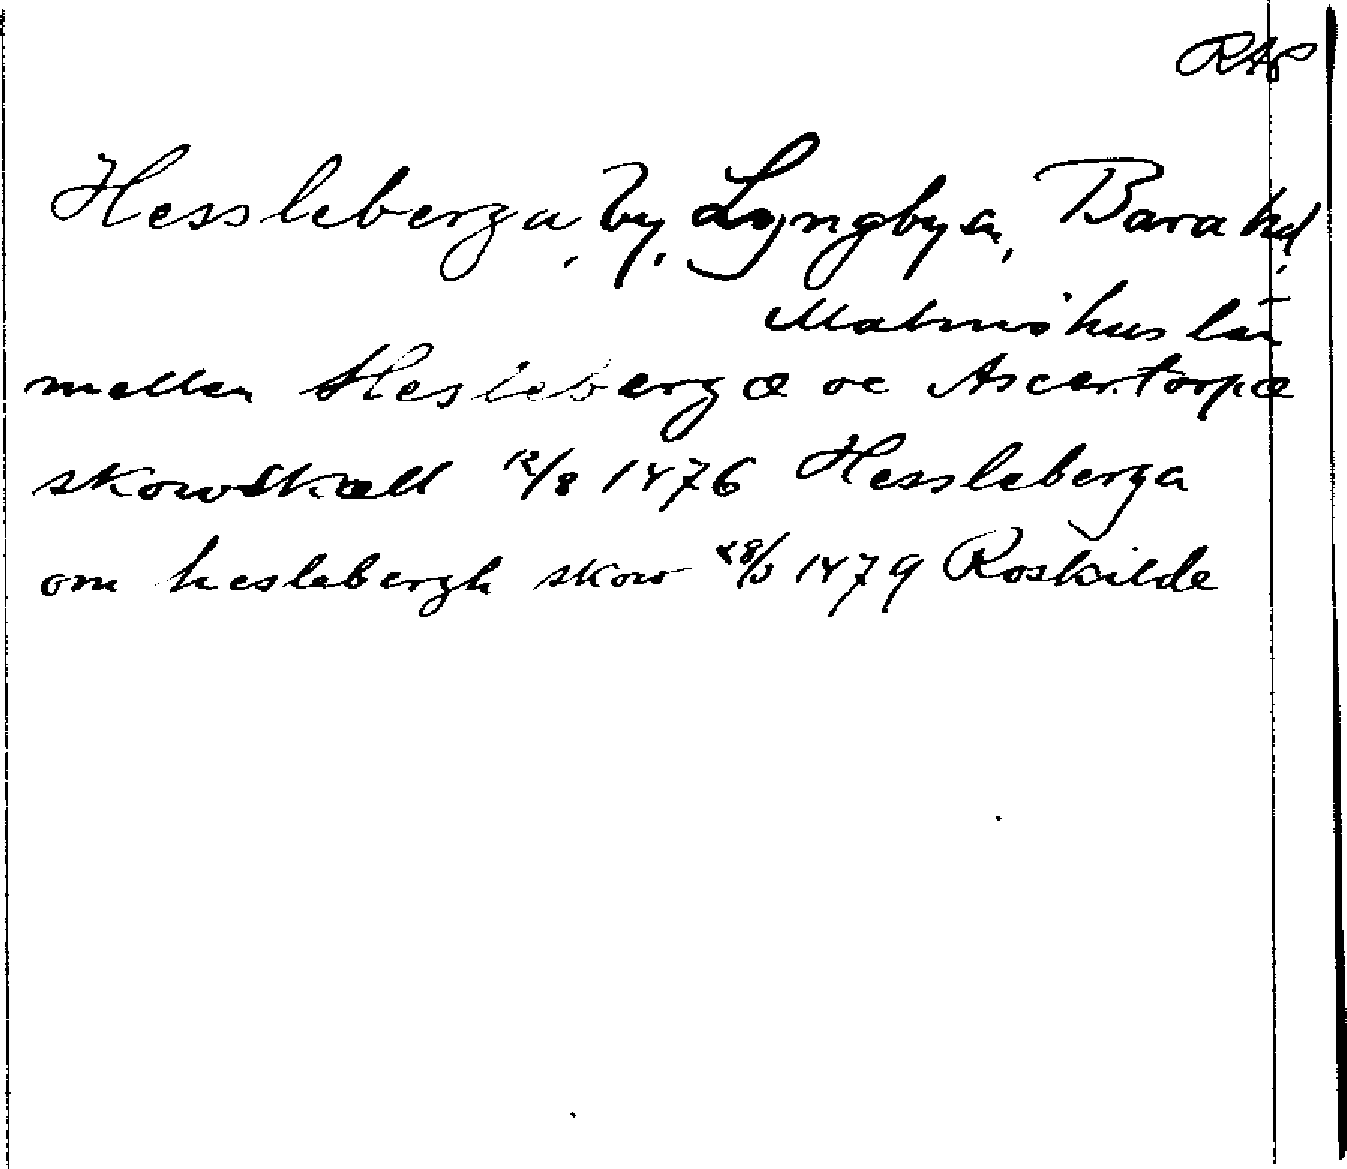 RAP
Hessleberga, by, Lyngby sn, Bara hd,
Malmöhus län
mellen Heslebergæ oc Ascertorpæ
skowskæll 12/8 1476 Hessleberga
om heslebergh skow 28/5 1479 Roskilde